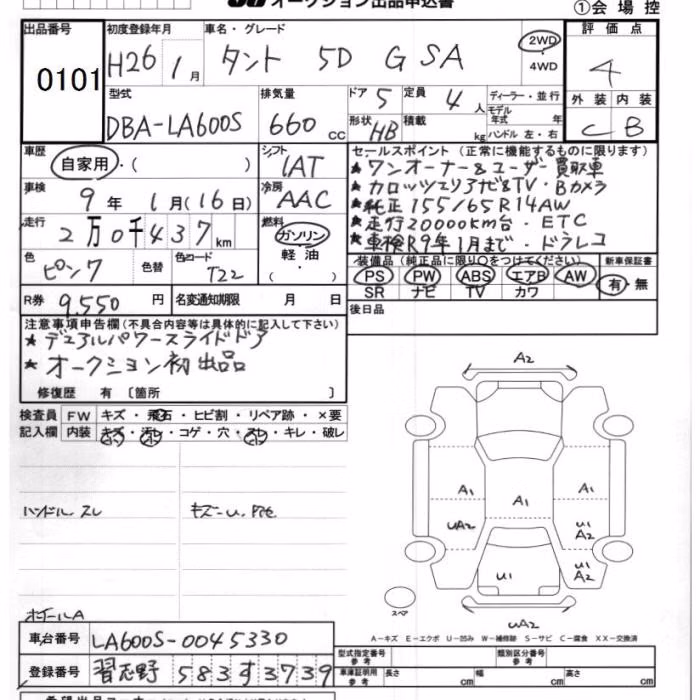 オークション出品申込書
①会場控
出品番号 初度登録年月 車名・グレード 評価点
0101 H26 1月 タント 5D G SA 2WD 4
4WD
型式 排気量 ドア 5 定員 4人 ディーラー・並行 外装 内装
DBA-LA600S 660cc 形状 HB 積載 kg モデル年式 年 C B
ハンドル 左・右
車歴 シフト セールスポイント (正常に機能するものに限ります)
自家用・( ) IAT ★ワンオーナー&ユーザー買取車
車検 9年 1月(16日) 冷房 AAC ★カロッツェリアナビ&TV・Bカメラ
★純正155/65R14AW
走行 2万0千437km 燃料 ガソリン ★走行20000km台・ETC
軽油 ★車検R9年1月まで・ドラレコ
( )
色 ピンク 色替 色コード T22 装備品(純正品に限り○をつけてください) 新車保証書
PS PW ABS エアB AW 有・無
SR ナビ TV カワ
R券 9,550円 名変通知期限 月 日 後日品
注意事項申告欄(不具合内容等は具体的に記入して下さい)
★デュアルパワースライドドア
★オークション初出品
修復歴 有 〔箇所 〕
検査員 FW キズ・飛石・ヒビ割・リペア跡・×要
記入欄 内装 キズ・汚レ・コゲ・穴・スレ・キレ・破レ
ハンドル スレ キズ・U.
ホイールA
A2
A1 A1 A1
UA2 U1
A2
U1 U1
A2
スペア
UA2
A-キズ E-エクボ U-凹み W-補修跡 S-サビ C-腐食 XX-交換済
車台番号 LA600S-0045330 型式指定番号 参考 類別区分番号 参考
登録番号 習志野 583 す 3739 車庫証明用 参考 長さ cm 幅 cm 高さ cm